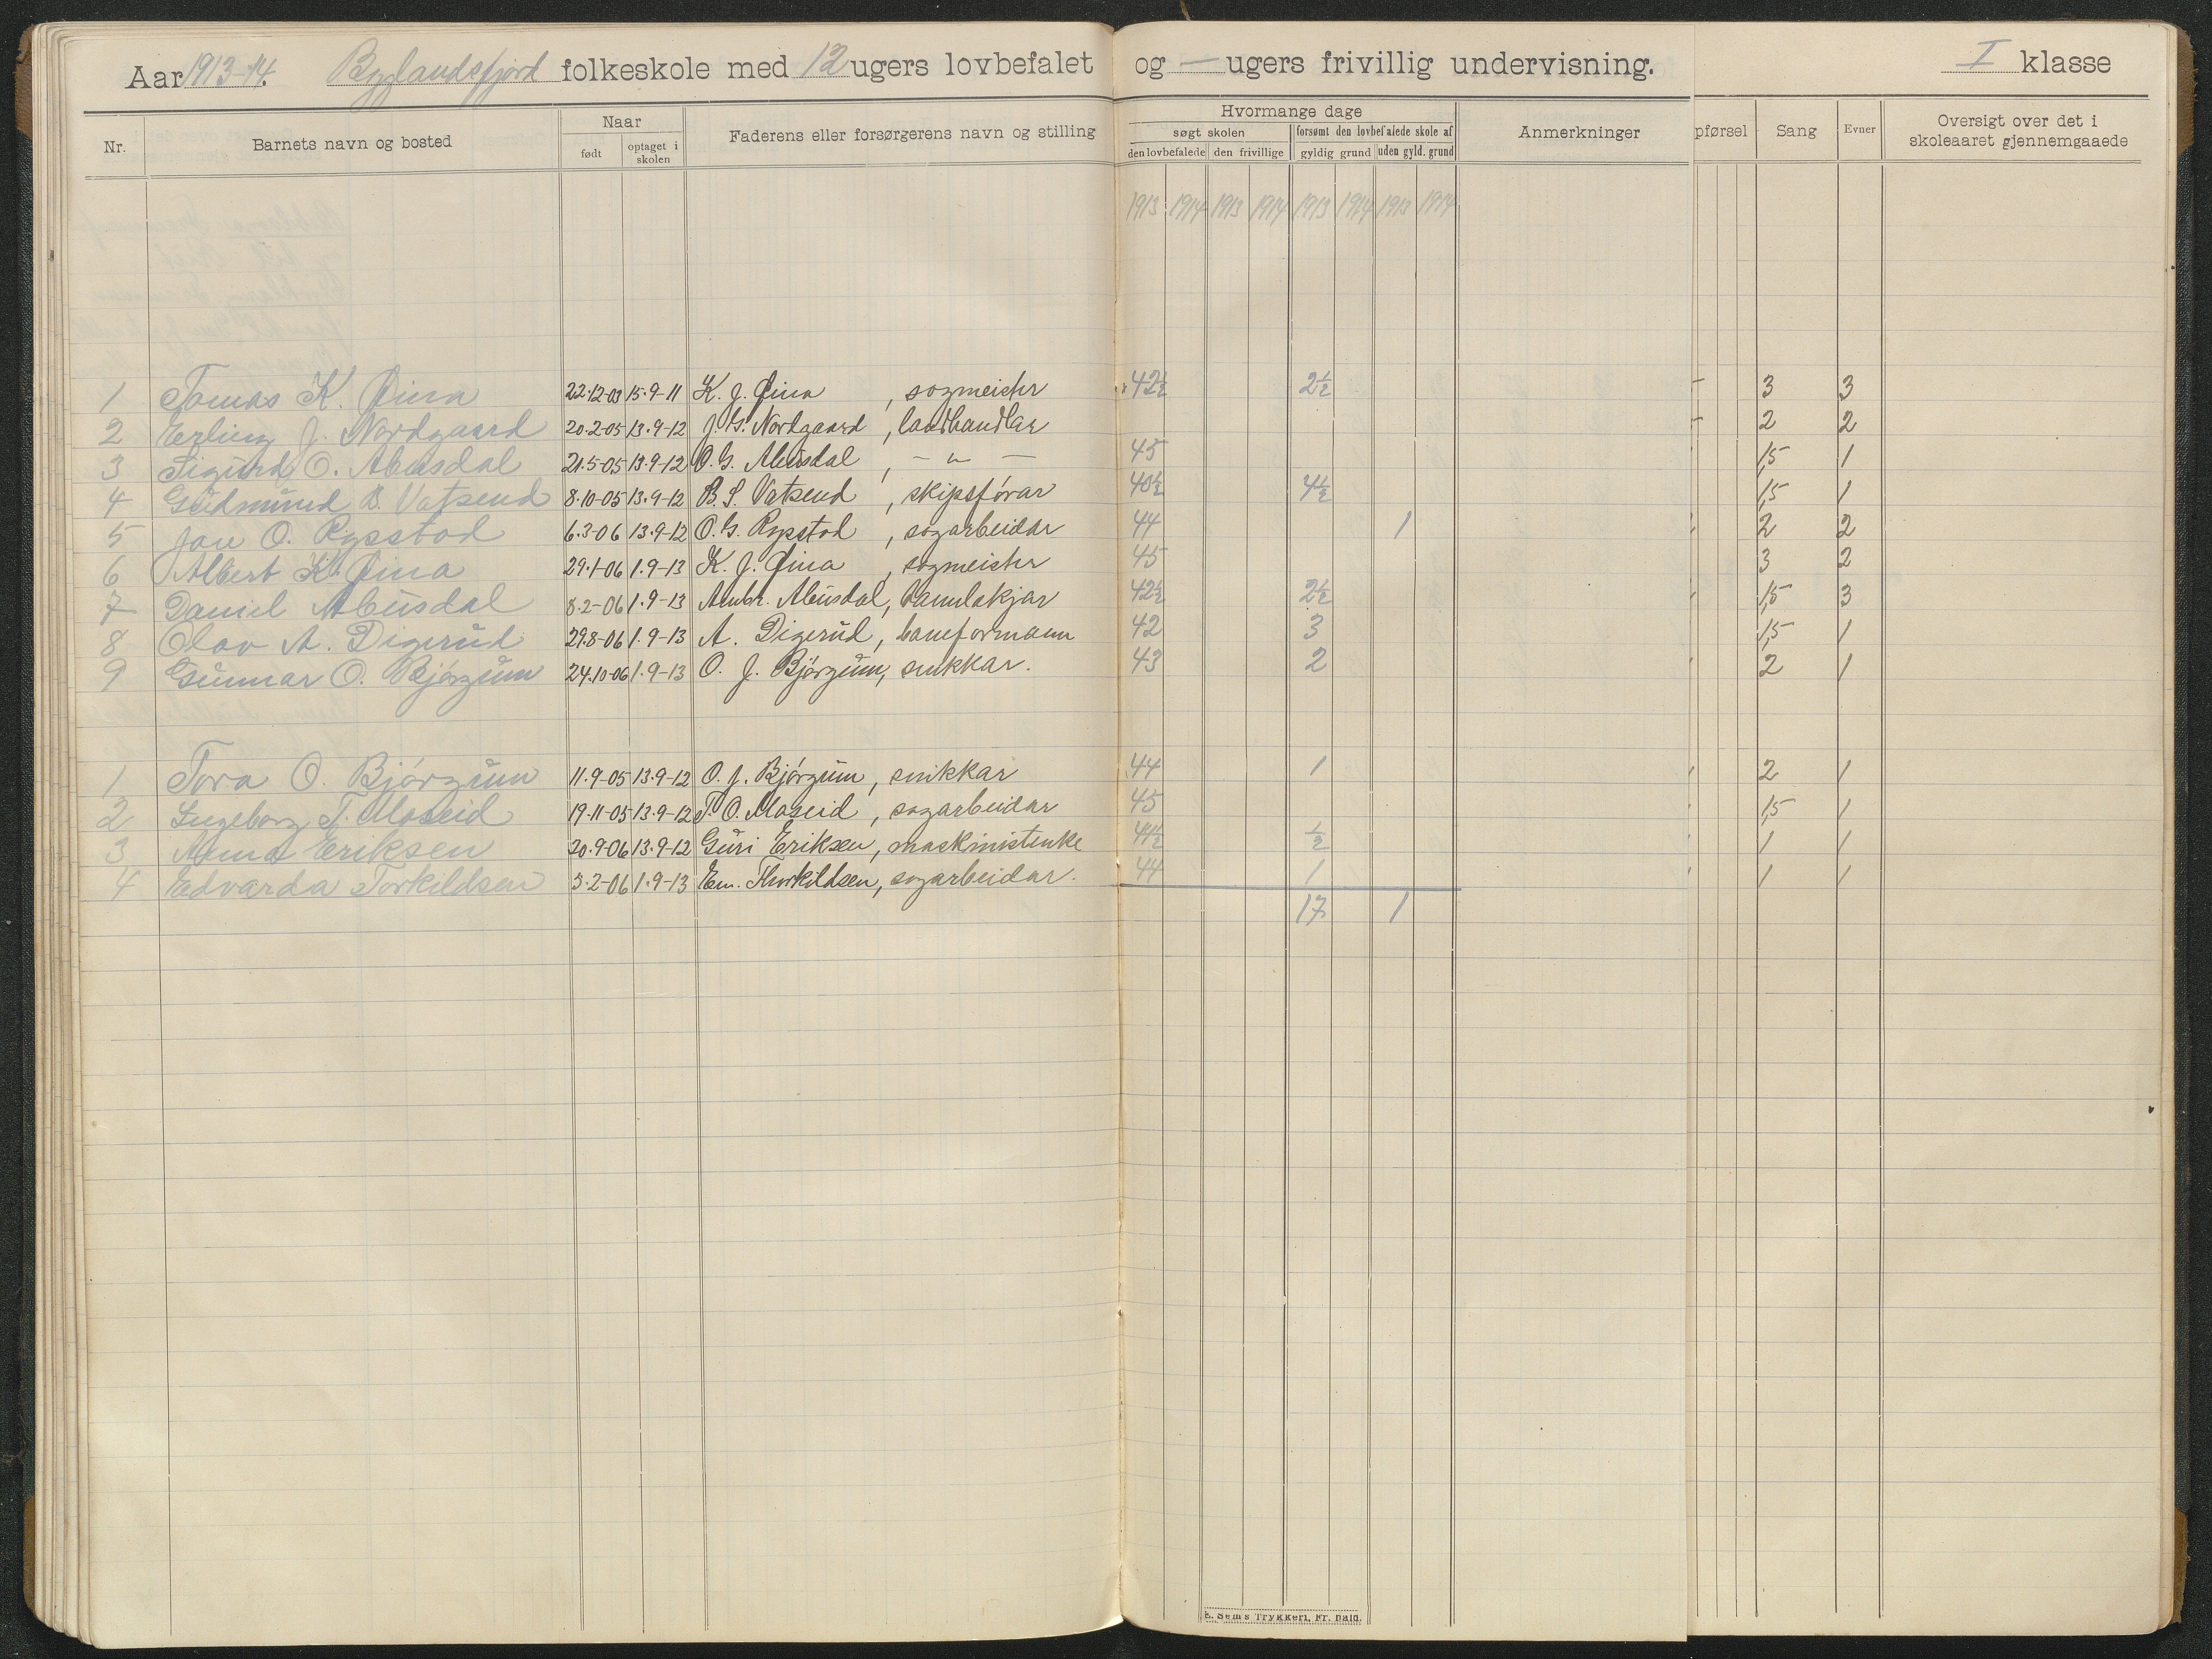 Aar 1913-14. Byglandsfjord folkeskole med 12 ugers lovbefalet og — ugers frivillig undervisning. I klasse
Nr. Barnets navn og bosted Naar født optaget i skolen Faderens eller forsørgerens navn og stilling Hvormange dage søgt skolen den lovbefalede den frivillige forsømt den lovbefalede skole af gyldig grund uden gyld. grund Anmerkninger pførsel Sang Evner Oversigt over det i skoleaaret gjennemgaaede
1913 1914 1913 1914 1913 1914 1913 1914
1 Tomas K. Øina 22-12-03 15-9-11 K. J. Øina, sogmeister 42½ 2½ 3 3
2 Erling J. Nordgaard 20-2-05 13-9-12 J. G. Nordgaard, landhandlar 2 2
3 Sigurd O. Abusdal 21-5-05 13-9-12 O. G. Abusdal, - " - 45 1,5 1
4 Gudmund B. Vatsend 8-10-05 13-9-12 B. S. Vatsend, skipsförar 40½ 4½ 1,5 1
5 Jon O. Rysstad 6-3-06 13-9-12 O. G. Rysstad, sogarbeidar 44 1 2 2
6 Albert K. Øina 29-1-06 1-9-13 K. J. Øina, sogmeister 45 3 2
7 Daniel Abusdal 8-2-06 1-9-13 Ambr. Abusdal, 42½ 2½ 1,5 3
8 Olav A. Digerud 29-8-06 1-9-13 A. Digerud, baneformann 42 3 1,5 1
9 Gunnar O. Bjórgum 24-10-06 1-9-13 O. J. Bjórgum, snikkar. 43 2 2 1
1 Tora O. Bjórgum 11-9-05 13-9-12 O. J. Bjórgum, snikkar 44 1 2 1
2 Ingeborg T. Moseid 19-11-05 13-9-12 T. O. Moseid, sogarbeidar 45 1,5 1
3 Anna Eriksen 20-9-06 13-9-12 Guri Eriksen, maskinistenke 44½ ½ 1 1
4 Edvarda Torkildsen 3-2-06 1-9-13 Em. Thorkildsen, sogarbeidar. 44 1 1 1
17 1
E. Sem's Trykkeri, Fr. hald.